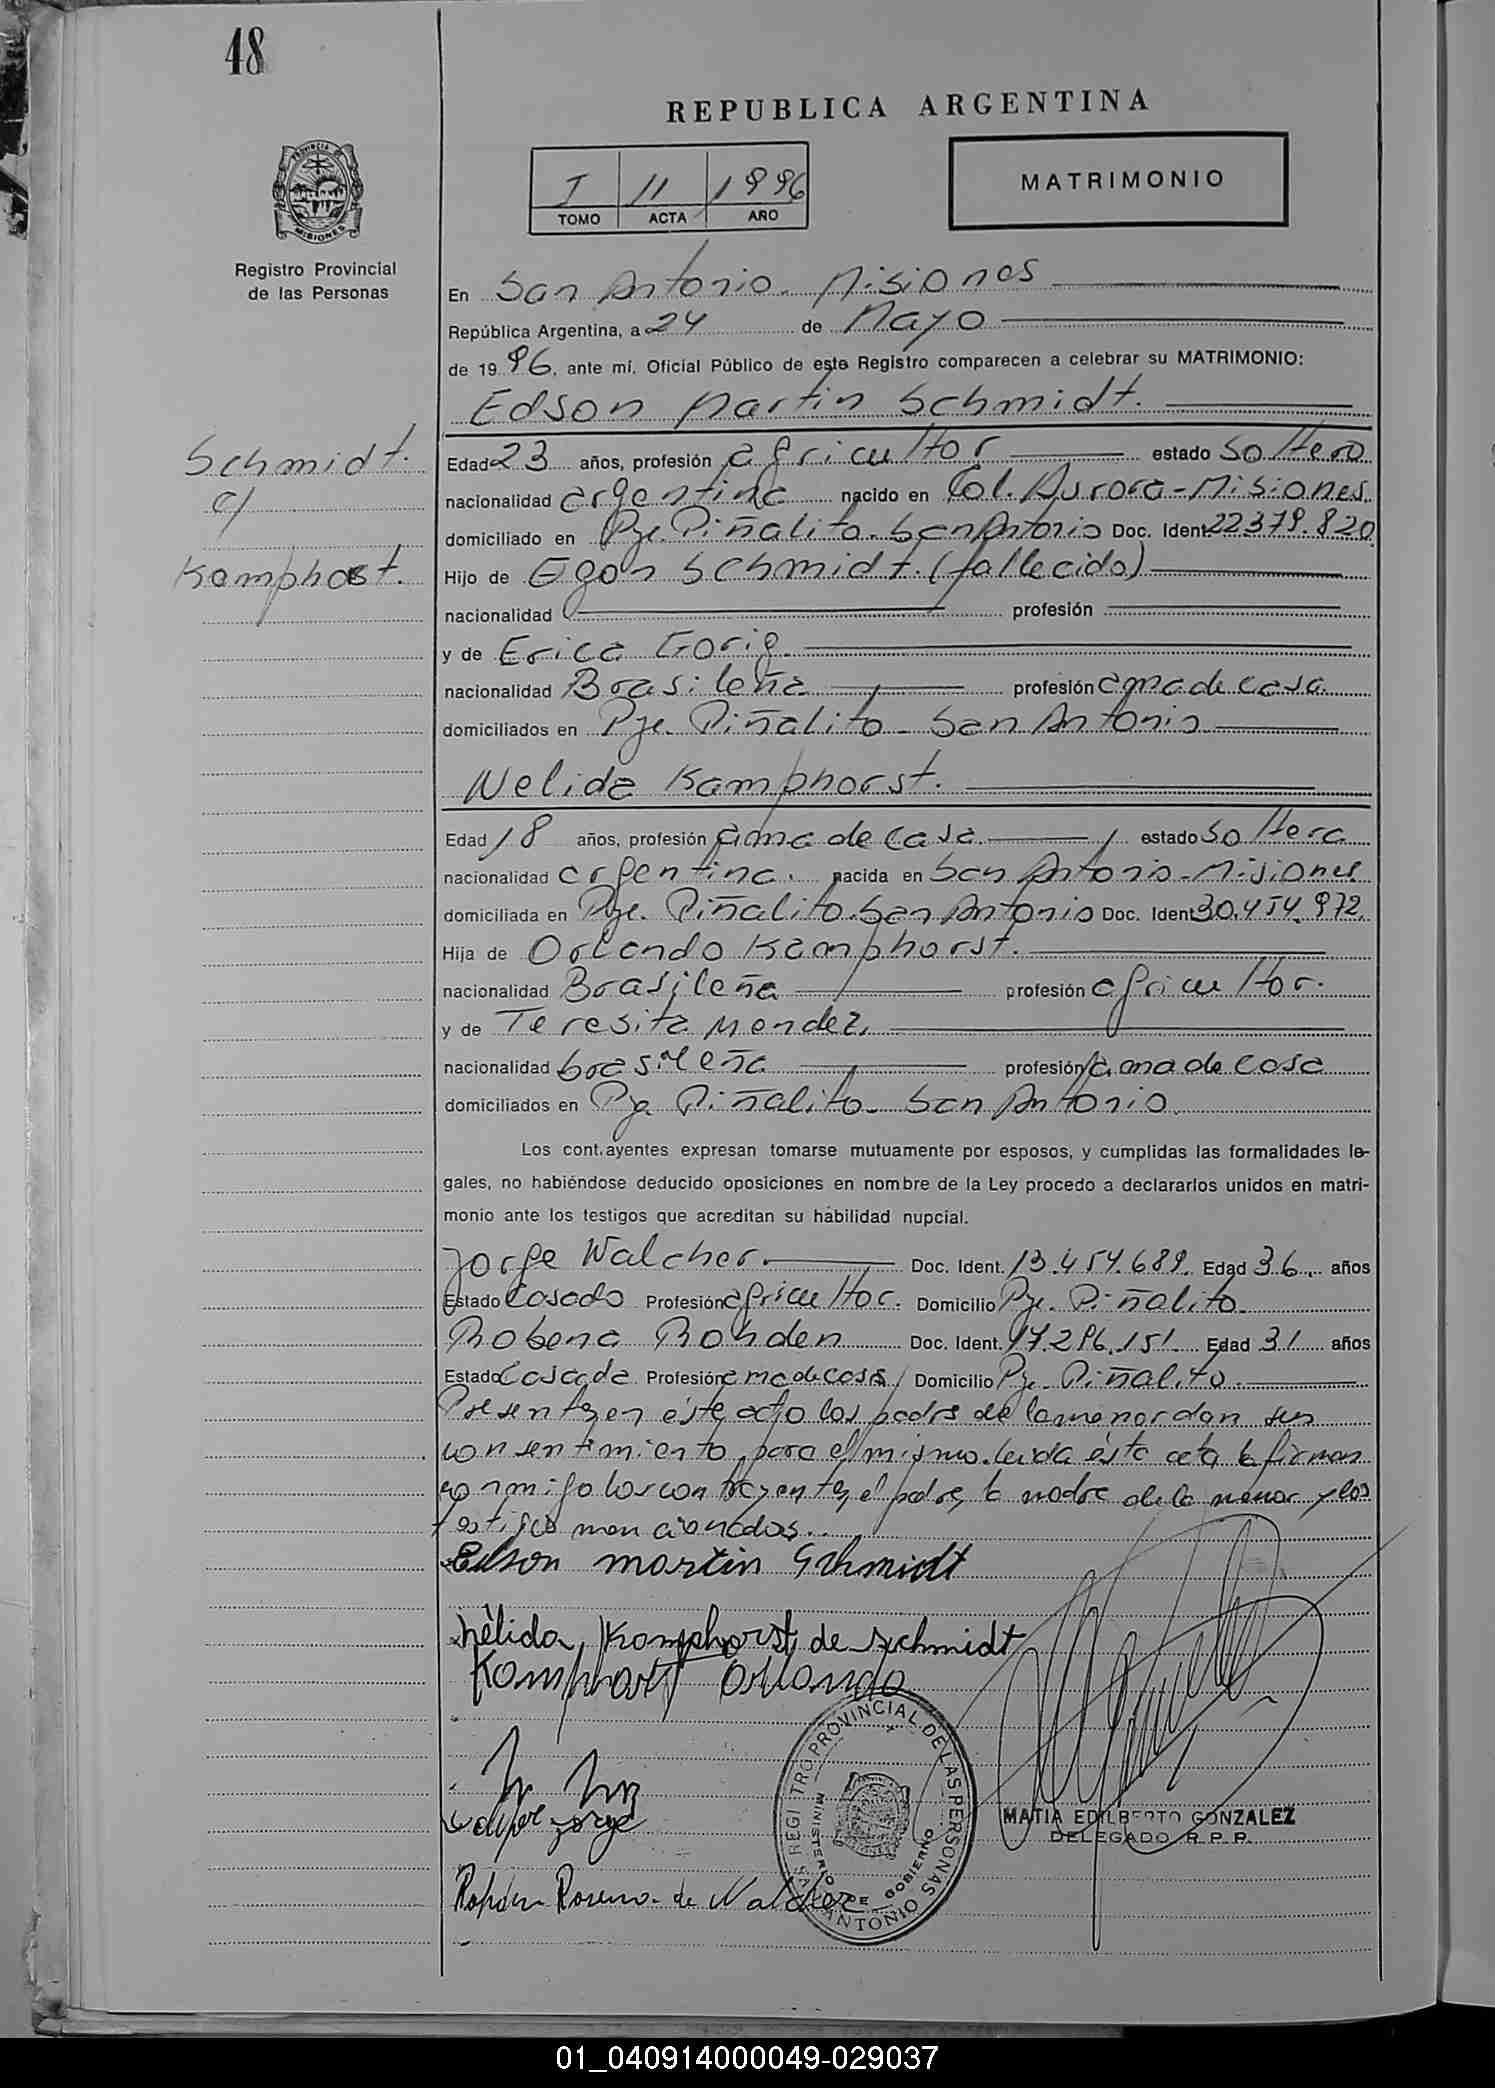 48
REPUBLICA ARGENTINA
I 11 1996
TOMO ACTA AÑO
MATRIMONIO
PROVINCIA DE MISIONES
Registro Provincial
de las Personas
En San Antonio - Misiones
República Argentina, a 24 de Mayo
de 1996, ante mí, Oficial Público de este Registro comparecen a celebrar su MATRIMONIO:
Edson Martin Schmidt.
Schmidt.
c/
Kamphorst.
Edad 23 años, profesión agricultor estado soltero
nacionalidad argentina nacido en Col. Aurora - Misiones.
domiciliado en Pje. Piñalito - San Antonio Doc. Ident. 22.379.820
Hijo de Egon Schmidt. (fallecido)
nacionalidad profesión
y de Erica Gorig.
nacionalidad Brasileña profesión ama de casa.
domiciliados en Pje. Piñalito - San Antonio
Nelida Kamphorst.
Edad 18 años, profesión ama de casa. estado soltera
nacionalidad argentina. nacida en San Antonio - Misiones
domiciliada en Pje. Piñalito. San Antonio Doc. Ident. 30.454.972.
Hija de Orlando Kamphorst.
nacionalidad Brasileña profesión agricultor.
y de Teresita Mendez.
nacionalidad brasileña profesión ama de casa
domiciliados en Pje Piñalito - San Antonio.
Los contrayentes expresan tomarse mutuamente por esposos, y cumplidas las formalidades le-
gales, no habiéndose deducido oposiciones en nombre de la Ley procedo a declararlos unidos en matri-
monio ante los testigos que acreditan su hábilidad nupcial.
Jorge Walcher. Doc. Ident. 13.454.689. Edad 36 años
Estado Casado Profesión agricultor. Domicilio Pje. Piñalito.
Rohden Doc. Ident. 17.296.151 Edad 31 años
Estado Casada Profesión ama de casa Domicilio Pje. Piñalito.
Presentes en éste acto los padres de la menor dan su
consentimiento para el mismo. leida ésta acta la firman
conmigo los contrayentes, el padre, la madre de la menor y los
testigos mencionados..
Edson martin Schmidt
Nélida Kamphorst de Schmidt
Kamphorst Orlando
Jorge
Rohden de Walcher
REGISTRO PROVINCIAL DE LAS PERSONAS
MINISTERIO DE GOBIERNO
SAN ANTONIO
MATIA EDILBERTO GONZALEZ
DELEGADO R.P.P.
01_040914000049-029037